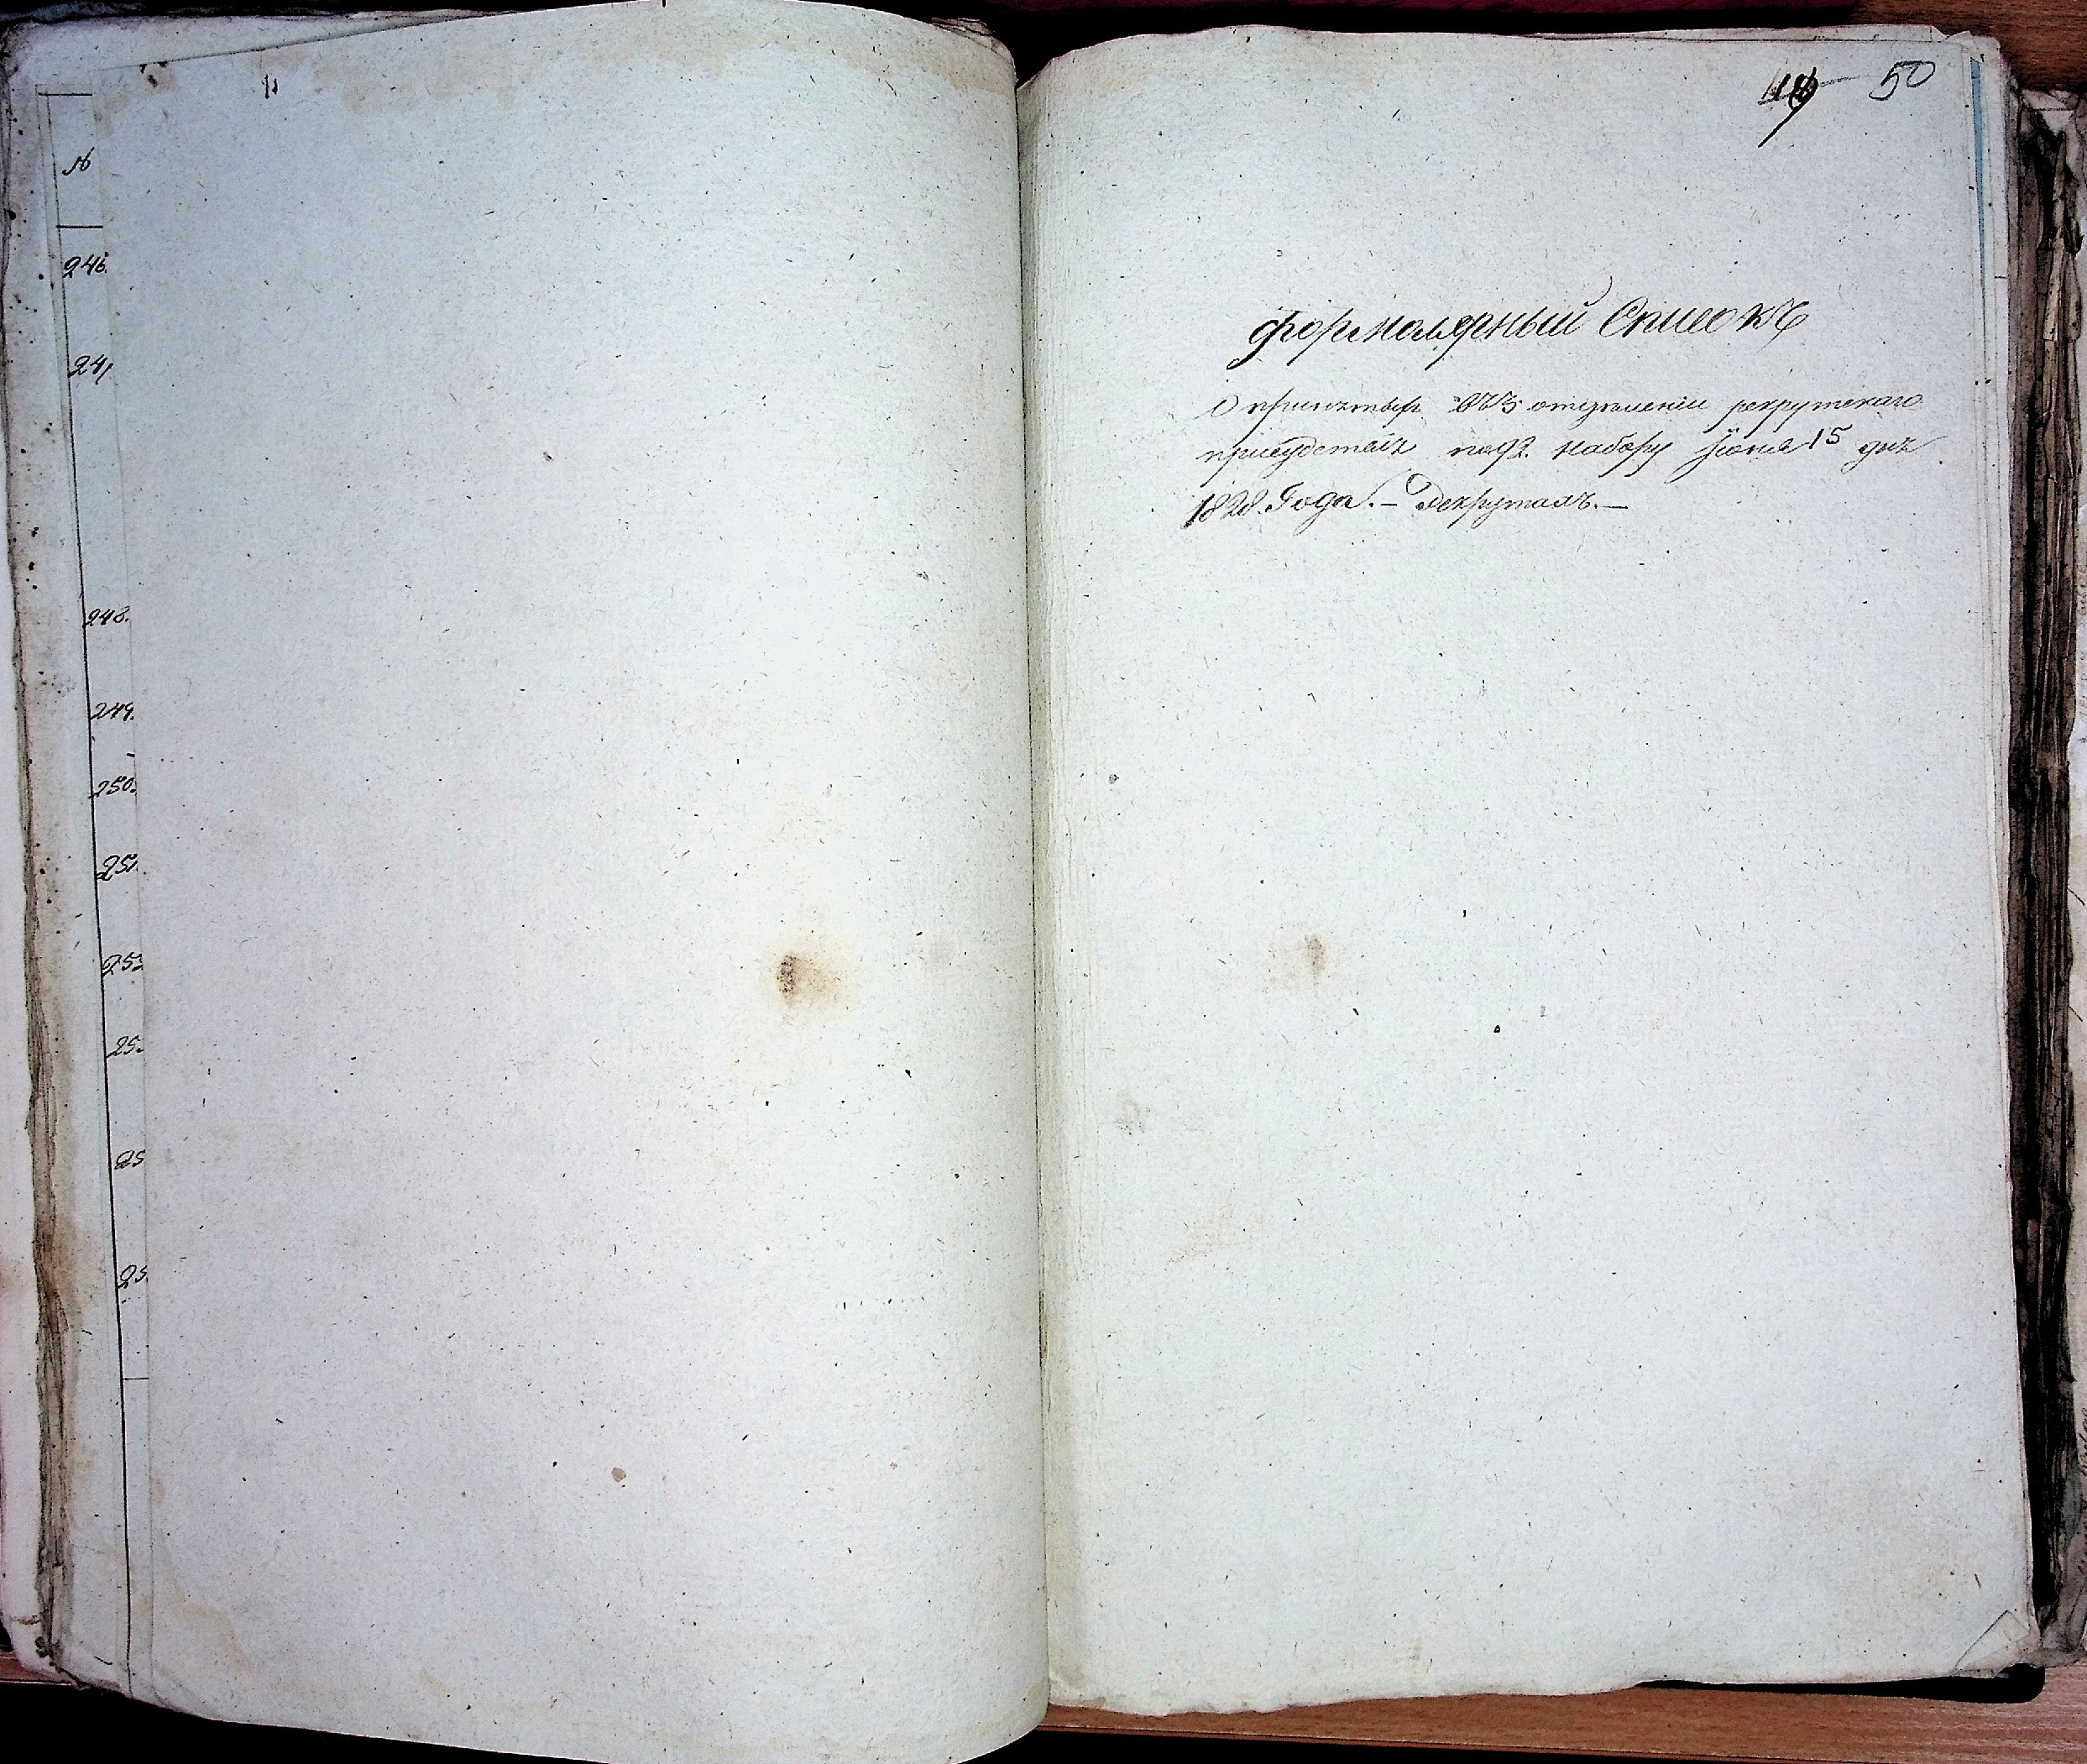 №
246.
247
248.
249.
250.
251.
25
25
25
25
50
Формулярный Списокъ
О принятыхъ въ 3 отделении рекрутскаго
присудствия по 92. набору июня 15 дня
1828. Года. — Рекрутахъ. —